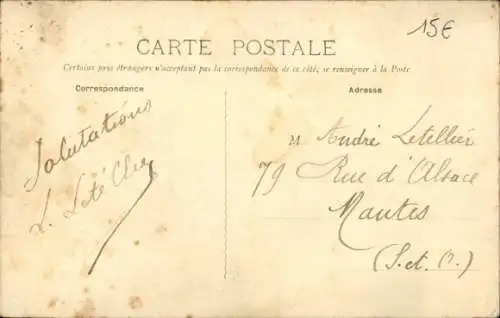 15€
CARTE POSTALE
Certains pays étrangers n'acceptant pas la correspondance de ce côté, se renseigner à la Poste
Correspondance
Adresse
Salutations
M André Letellier
79 Rue d'Alsace
Mantes
(S. et. O.)